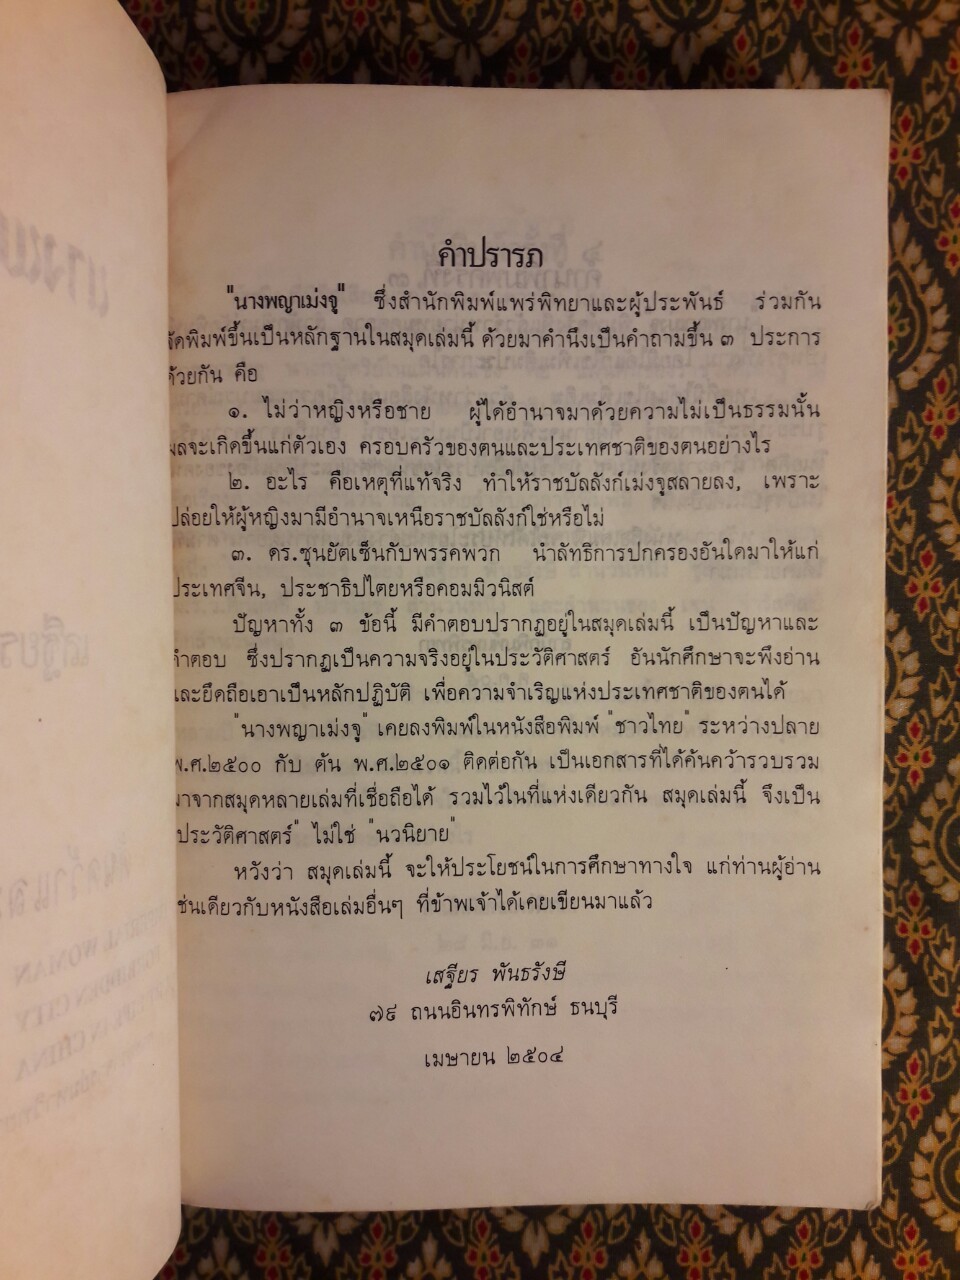 คำปรารภ
"นางพญาเม่งจู" ซึ่งสำนักพิมพ์แพร่พิทยาและผู้ประพันธ์ ร่วมกัน
จัดพิมพ์ขึ้นเป็นหลักฐานในสมุดเล่มนี้ ด้วยมาคำนึงเป็นคำถามขึ้น ๓ ประการ
ด้วยกัน คือ
๑. ไม่ว่าหญิงหรือชาย ผู้ได้อำนาจมาด้วยความไม่เป็นธรรมนั้น
ผลจะเกิดขึ้นแก่ตัวเอง ครอบครัวของตนและประเทศชาติของตนอย่างไร
๒. อะไร คือเหตุที่แท้จริง ทำให้ราชบัลลังก์เม่งจูสลายลง, เพราะ
ปล่อยให้ผู้หญิงมามีอำนาจเหนือราชบัลลังก์ใช่หรือไม่
๓. ดร.ซุนยัตเซ็นกับพรรคพวก นำลัทธิการปกครองอันใดมาให้แก่
ประเทศจีน, ประชาธิปไตยหรือคอมมิวนิสต์
ปัญหาทั้ง ๓ ข้อนี้ มีคำตอบปรากฏอยู่ในสมุดเล่มนี้ เป็นปัญหาและ
คำตอบ ซึ่งปรากฏเป็นความจริงอยู่ในประวัติศาสตร์ อันนักศึกษาจะพึงอ่าน
และยึดถือเอาเป็นหลักปฏิบัติ เพื่อความจำเริญแห่งประเทศชาติของตนได้
"นางพญาเม่งจู" เคยลงพิมพ์ในหนังสือพิมพ์ "ชาวไทย" ระหว่างปลาย
พ.ศ.๒๕๐๐ กับ ต้น พ.ศ.๒๕๐๑ ติดต่อกัน เป็นเอกสารที่ได้ค้นคว้ารวบรวม
มาจากสมุดหลายเล่มที่เชื่อถือได้ รวมไว้ในที่แห่งเดียวกัน สมุดเล่มนี้ จึงเป็น
ประวัติศาสตร์" ไม่ใช่ "นวนิยาย"
หวังว่า สมุดเล่มนี้ จะให้ประโยชน์ในการศึกษาทางใจ แก่ท่านผู้อ่าน
เช่นเดียวกับหนังสือเล่มอื่นๆ ที่ข้าพเจ้าได้เคยเขียนมาแล้ว
เสฐียร พันธรังษี
๗๙ ถนนอินทรพิทักษ์ ธนบุรี
เมษายน ๒๕๐๔